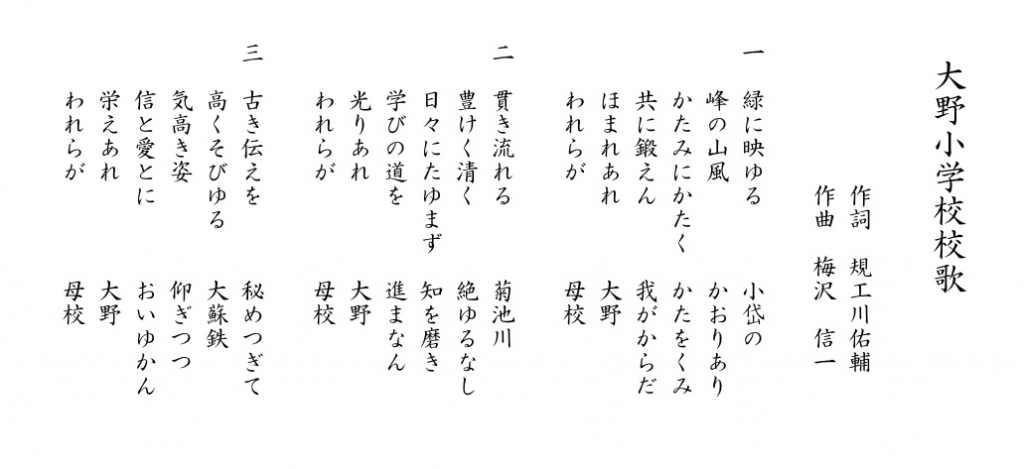 大野小学校校歌
作詞　規工川佑輔
作曲　梅沢　信一
一　緑に映ゆる　小岱の
峰の山風　かおりあり
かたみにかたく　かたをくみ
共に鍛えん　我がからだ
ほまれあれ　大野
われらが　母校
二　貫き流れる　菊池川
豊けく清く　絶ゆるなし
日々にたゆまず　知を磨き
学びの道を　進まなん
光りあれ　大野
われらが　母校
三　古き伝えを　秘めつぎて
高くそびゆる　大蘇鉄
気高き姿　仰ぎつつ
信と愛とに　おいゆかん
栄えあれ　大野
われらが　母校